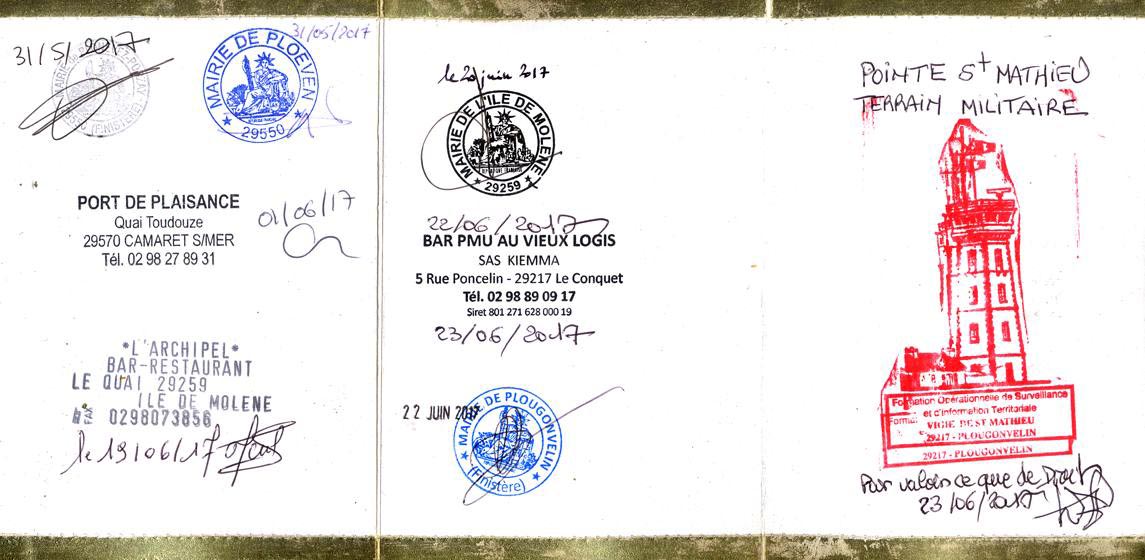 31/5/2017
29550 (FINISTÈRE)
31/05/2017
MAIRIE DE PLOEVEN
29550
PORT DE PLAISANCE
Quai Toudouze
29570 CAMARET S/MER
Tél. 02 98 27 89 31
01/06/17
*L'ARCHIPEL*
BAR-RESTAURANT
LE QUAI 29259
ILE DE MOLENE
0298073856
le 19/06/17
le 20 juin 2017
MAIRIE DE L'ILE DE MOLENE
REPUBLIQUE FRANCAISE
29259
22/06/2017
BAR PMU AU VIEUX LOGIS
SAS KIEMMA
5 Rue Poncelin - 29217 Le Conquet
Tél. 02 98 89 09 17
Siret 801 271 628 000 19
23/06/2017
22 JUIN 2017
MAIRIE DE PLOUGONVELIN
(Finistère)
POINTE St MATHIEU
TERRAIN MILITAIRE
Formation Opérationnelle de Surveillance
et d'Information Territoriale
VIGIE DE ST MATHIEU
29217 - PLOUGONVELIN
29217 - PLOUGONVELIN
Pour valoir ce que de Droit
23/06/2017